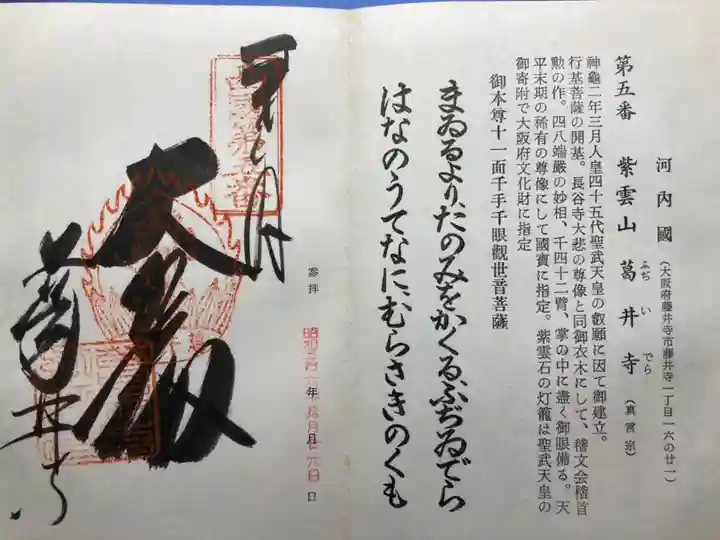 河內國（大阪府藤井寺市藤井寺一丁目一六の廿一）
第五番 紫雲山 葛井寺（真言宗）
ふぢ い でら
神龜二年三月人皇四十五代聖武天皇の叡願に因て御建立。
行基菩薩の開基。長谷寺大悲の尊像と同御衣木にして、稽文会稽首
勲の作。四八端嚴の妙相、千四十二臂、掌の中に盡く御眼備る。天
平末期の稀有の尊像にして國寳に指定。紫雲石の灯籠は聖武天皇の
御寄附で大阪府文化財に指定
御本尊十一面千手千眼觀世音菩薩
まゐるより、たのみをかくる、ふぢゐでら
はなのうてなに、むらさきのくも
参拝
昭和 年 月 日
大悲殿
葛井寺